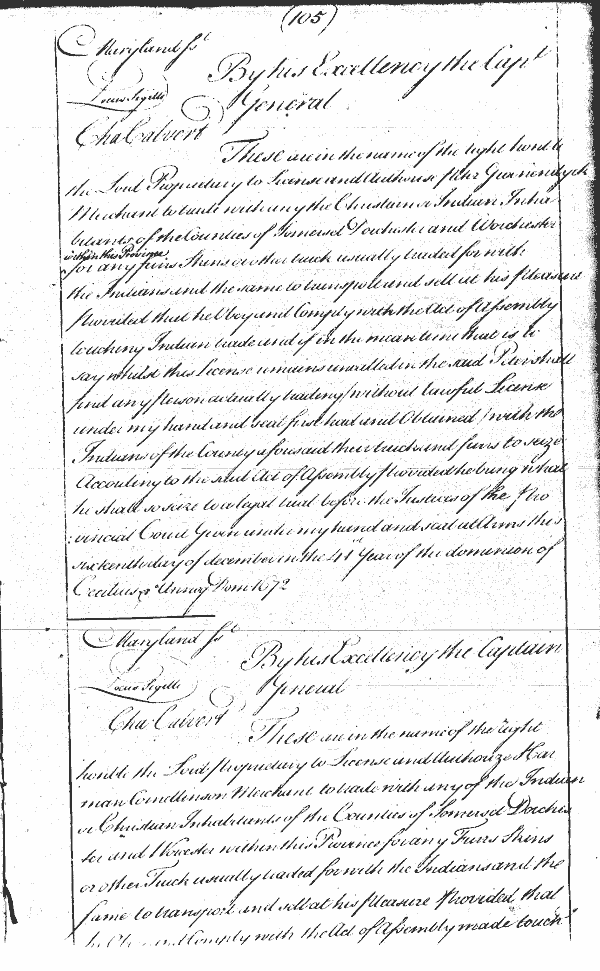 (105)
Maryland Ss.t
By his Excellency the Capt
General
Locus Sigilli
Cha Calvert
These are in the name of the right honble
the Lord Proprietary to License and Authorise Peter
Merchant to trade with any the Christian or Indian Inha
bitants of the Counties of Somersed Dorchester and Worchester
within this Province
for any furrs Skins or other truck usually traded for with
the Indians and the same to transport and sell at his pleasure
Provided that he Obey and Comply with the Act of Assembly
touching Indian trade and if in the mean time that is to
say whilst this License remains uncalled in the said Peter shall
find any person actually trading (without lawful License
under my hand and seal first had and Obtained) with the
Indians of the County aforesaid their truck and furrs to seize
According to the said Act of Assembly Provided he bring what
he shall so seize to a legal trial before the Justices of the Pro
vincial Court Given under my hand and seal at Arms this
sixteenth day of december in the 41st Year of the dominion of
Cecilius &c Annoq Dom 1672
Maryland Ss.t
By his Excellency the Captain
General
Locus Sigilli
Cha Calvert
These are in the name of the right
honble the Lord Proprietary to License and Authorize Har
man Merchant to trade with any of the Indian
or Christian Inhabitants of the Counties of Somersed Dorches
ter and Worcester within this Province for any Furrs Skins
or other Truck usually traded for with the Indians and the
same to transport and sell at his pleasure Provided that
he Obey and Comply with the Act of Assembly made touch